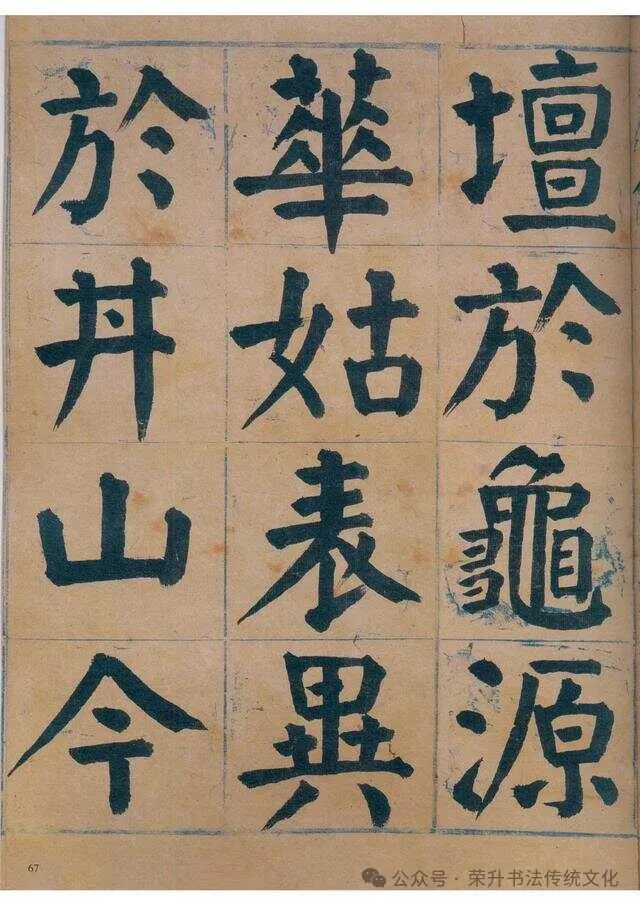 壇於龜源
華姑表異
於丹山今
67
公众号·荣升书法传统文化